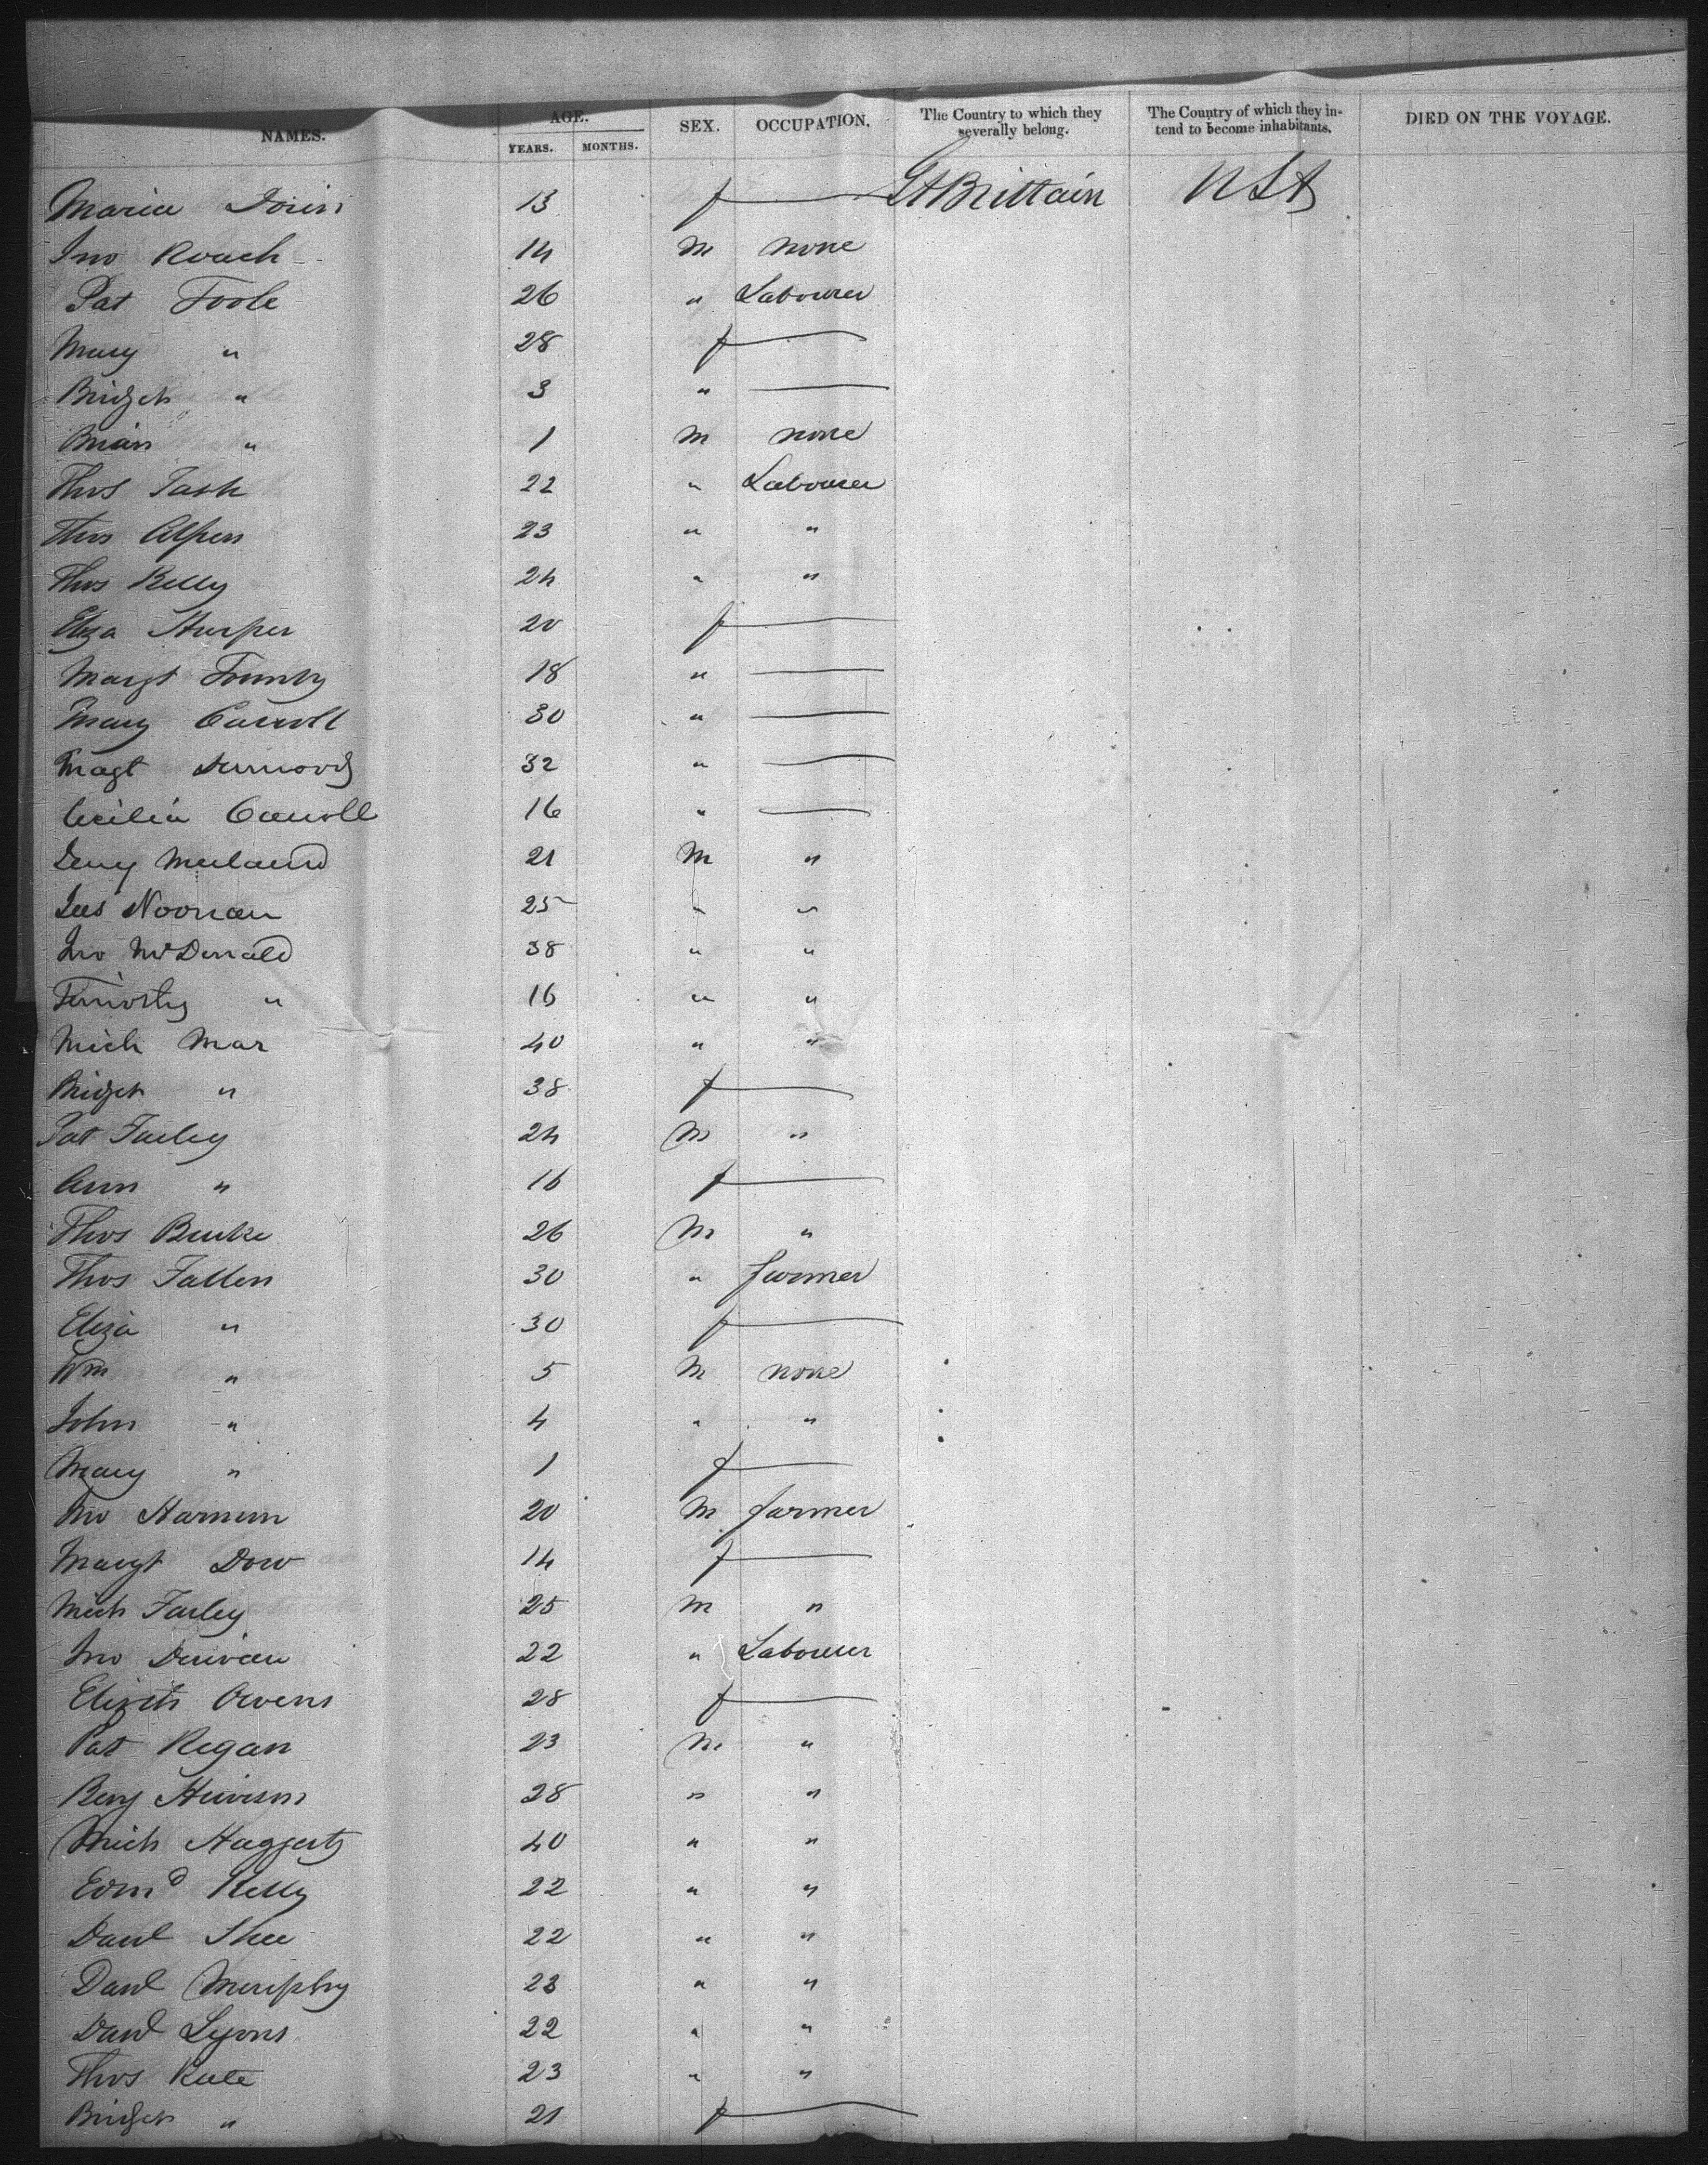 NAMES. AGE. YEARS. MONTHS. SEX. OCCUPATION. The Country to which they severally belong. The Country of which they intend to become inhabitants. DIED ON THE VOYAGE.
Maria 13 f — Gt Brittain USA
Jno Roach 14 M none
Pat Toole 26 " Labourer
Mary " 28 f —
Bridget " 3 " —
Brian " 1 M none
Thos 22 " Labourer
Thos 23 " "
Thos Kelly 24 " "
Eliza Harper 20 f —
Margt 18 " —
Mary Carroll 30 " —
Magt 32 " —
Cecilia Carroll 16 " —
21 M "
Noonan 25 " "
Jno McDonald 38 " "
Timothy " 16 " "
Mich Mar 40 " "
Bridget " 38 f —
Pat Farley 24 M "
Ann " 16 f —
Thos Burke 26 M "
Thos Fallen 30 " farmer
Eliza " 30 f —
Wm " 5 M none
John " 4 " "
Mary " 1 f —
Jno 20 M farmer
Margt Dow 14 f —
Mich Farley 25 M "
Jno 22 " Labourer
Elizth Owens 28 f —
Pat Regan 23 M "
Benj 28 " "
Mich Haggerty 40 " "
Edmd Kelly 22 " "
Danl Shee 22 " "
Danl Murphy 23 " "
Danl Lyons 22 " "
Thos 23 " "
Bridget " 21 f —